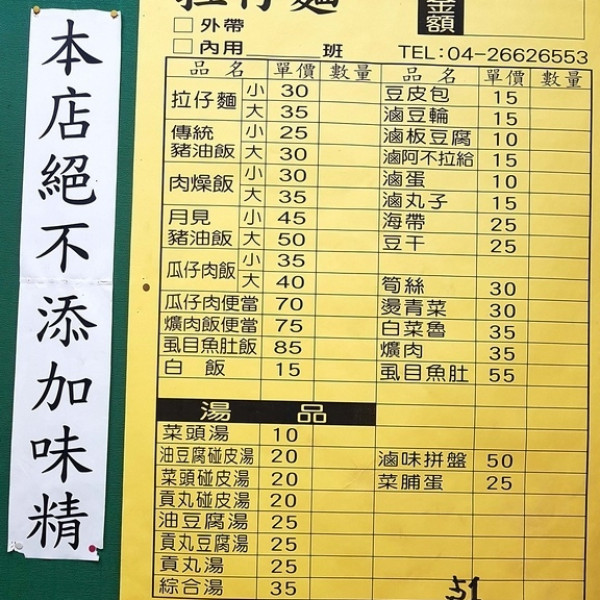 本店絕不添加味精
拉仔麵
金額
□外帶
□內用 班 TEL:04-26626553
品名 單價 數量 品名 單價 數量
拉仔麵 小 30 豆皮包 15
大 35 滷豆輪 15
傳統豬油飯 小 25 滷板豆腐 10
大 30 滷阿不拉給 15
肉燥飯 小 30 滷蛋 10
大 35 滷丸子 15
月見豬油飯 小 45 海帶 25
大 50 豆干 25
瓜仔肉飯 小 35
大 40 筍絲 30
瓜仔肉便當 70 燙青菜 30
爌肉飯便當 75 白菜魯 35
虱目魚肚飯 85 爌肉 35
白飯 15 虱目魚肚 55
湯品
菜頭湯 10
油豆腐碰皮湯 20 滷味拼盤 50
菜頭碰皮湯 20 菜脯蛋 25
貢丸碰皮湯 20
油豆腐湯 25
貢丸豆腐湯 25
貢丸湯 25
綜合湯 35
51